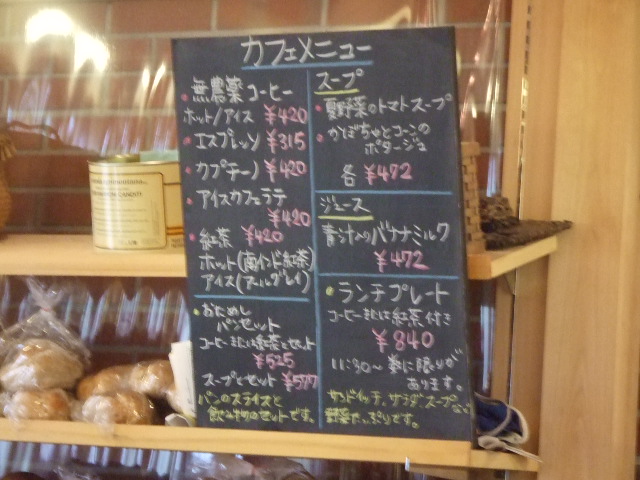 カフェメニュー
無農薬コーヒー
ホット/アイス ¥420
エスプレッソ ¥315
カプチーノ ¥420
アイスカフェラテ
¥420
紅茶 ¥420
ホット(南インド紅茶)
アイス(アールグレイ)
おためし
パンセット
コーヒーまたは紅茶とセット
¥525
スープとセット ¥577
パンのスライスと
飲み物のセットです。
スープ
夏野菜のトマトスープ
かぼちゃとコーンの
ポタージュ
各 ¥472
ジュース
青汁入りバナナミルク
¥472
ランチプレート
コーヒーまたは紅茶付き
¥840
11:30~ 数に限りが
あります。
サンドイッチ、サラダ、スープなど
野菜たっぷりです。